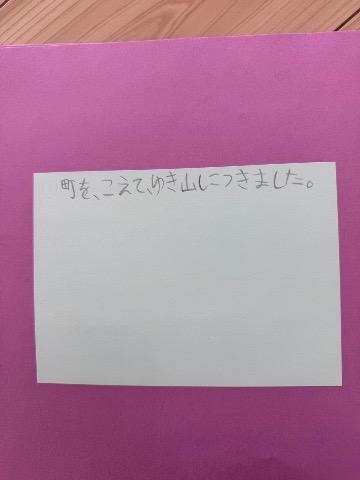 町を、こえて、ゆき山につきました。